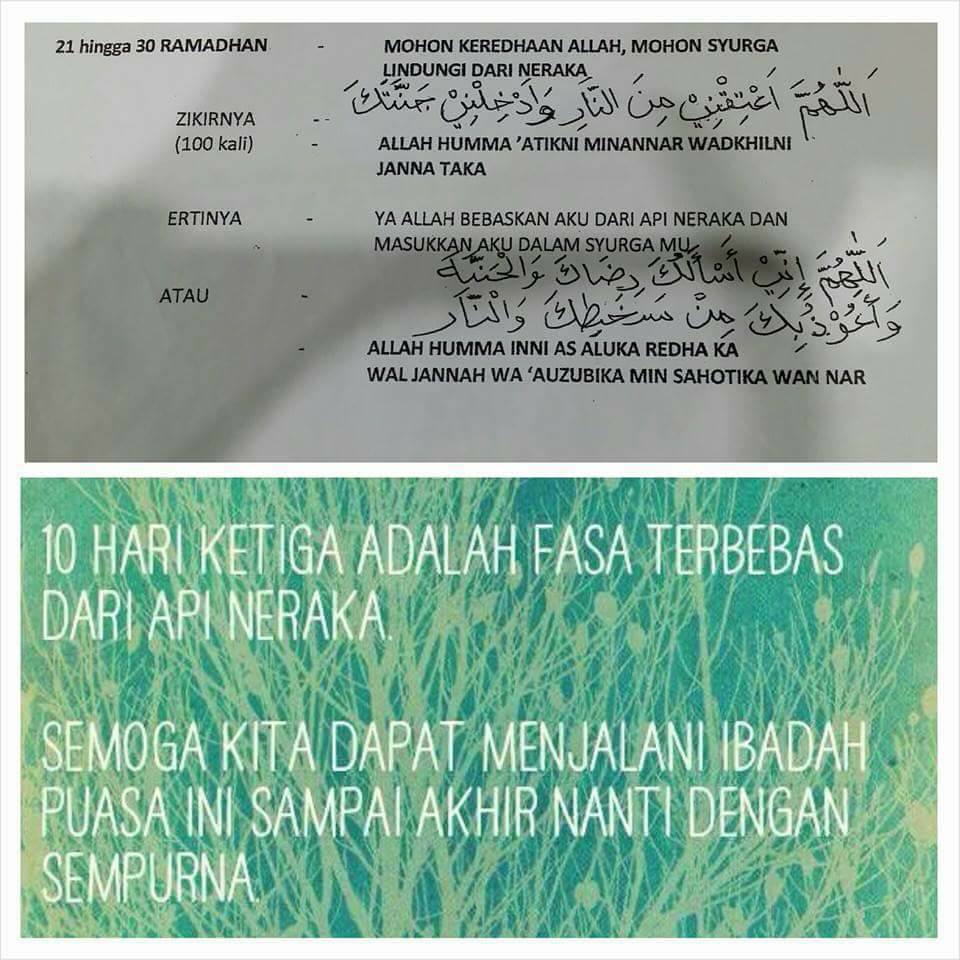 21 hingga 30 RAMADHAN - MOHON KEREDHAAN ALLAH, MOHON SYURGA
LINDUNGI DARI NERAKA
اَللّٰهُمَّ اَعْتِقْنِيْ مِنَ النَّارِ وَادْخِلْنِيْ جَنَّتَكَ
ZIKIRNYA --
(100 kali) - ALLAH HUMMA 'ATIKNI MINANNAR WADKHILNI
JANNA TAKA
ERTINYA - YA ALLAH BEBASKAN AKU DARI API NERAKA DAN
MASUKKAN AKU DALAM SYURGA MU
اَللّٰهُمَّ إِنِّيْ أَسْأَلُكَ رِضَاكَ وَالْجَنَّةَ
ATAU -
وَأَعُوْذُبِكَ مِنْ سَخَطِكَ وَالْنَّارِ
- ALLAH HUMMA INNI AS ALUKA REDHA KA
WAL JANNAH WA 'AUZUBIKA MIN SAHOTIKA WAN NAR
10 HARI KETIGA ADALAH FASA TERBEBAS
DARI API NERAKA.
SEMOGA KITA DAPAT MENJALANI IBADAH
PUASA INI SAMPAI AKHIR NANTI DENGAN
SEMPURNA.